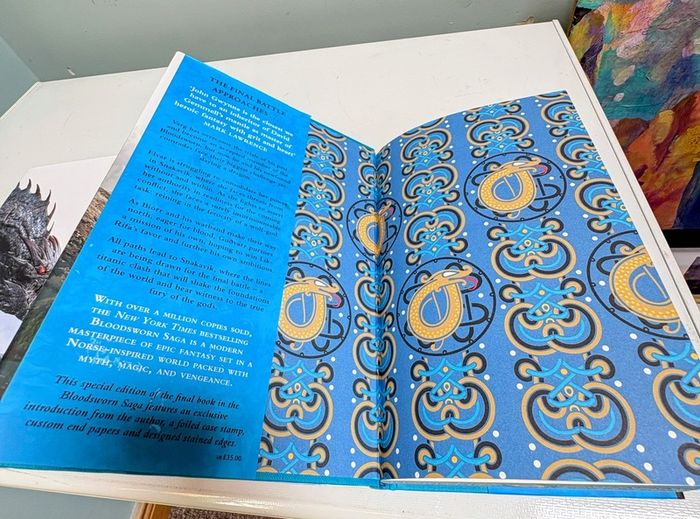 THE FINAL BATTLE
APPROACHES
'John Gwynne is the closest we
have to an inheritor of David
Gemmell's mantle as master of
heroic fantasy with grit and heart'
MARK LAWRENCE
Elvar is struggling to
in Snakavik,
her authority within
conflict, she faces a
task of the of a wolf-god
As Biórr and his warband make their way
north, eager for blood, Guðvarr pursues
a mission of his own, hoping to win Lik-
Rifa's favor and further his own ambitions.
All paths lead to Snakavik, where the lines
are being drawn for the final battle – a
titanic clash that will shake the foundations
of the world and bear witness to the true
fury of the gods.
WITH OVER A MILLION COPIES SOLD,
THE NEW YORK TIMES BESTSELLING
BLOODSWORN SAGA IS A MODERN
MASTERPIECE OF EPIC FANTASY SET IN A
NORSE-INSPIRED WORLD PACKED WITH
MYTH, MAGIC, AND VENGEANCE.
This special edition of the final book in the
Bloodsworn Saga features an exclusive
introduction from the author, a foiled case stamp,
custom end papers and designed stained edges.
£35.00